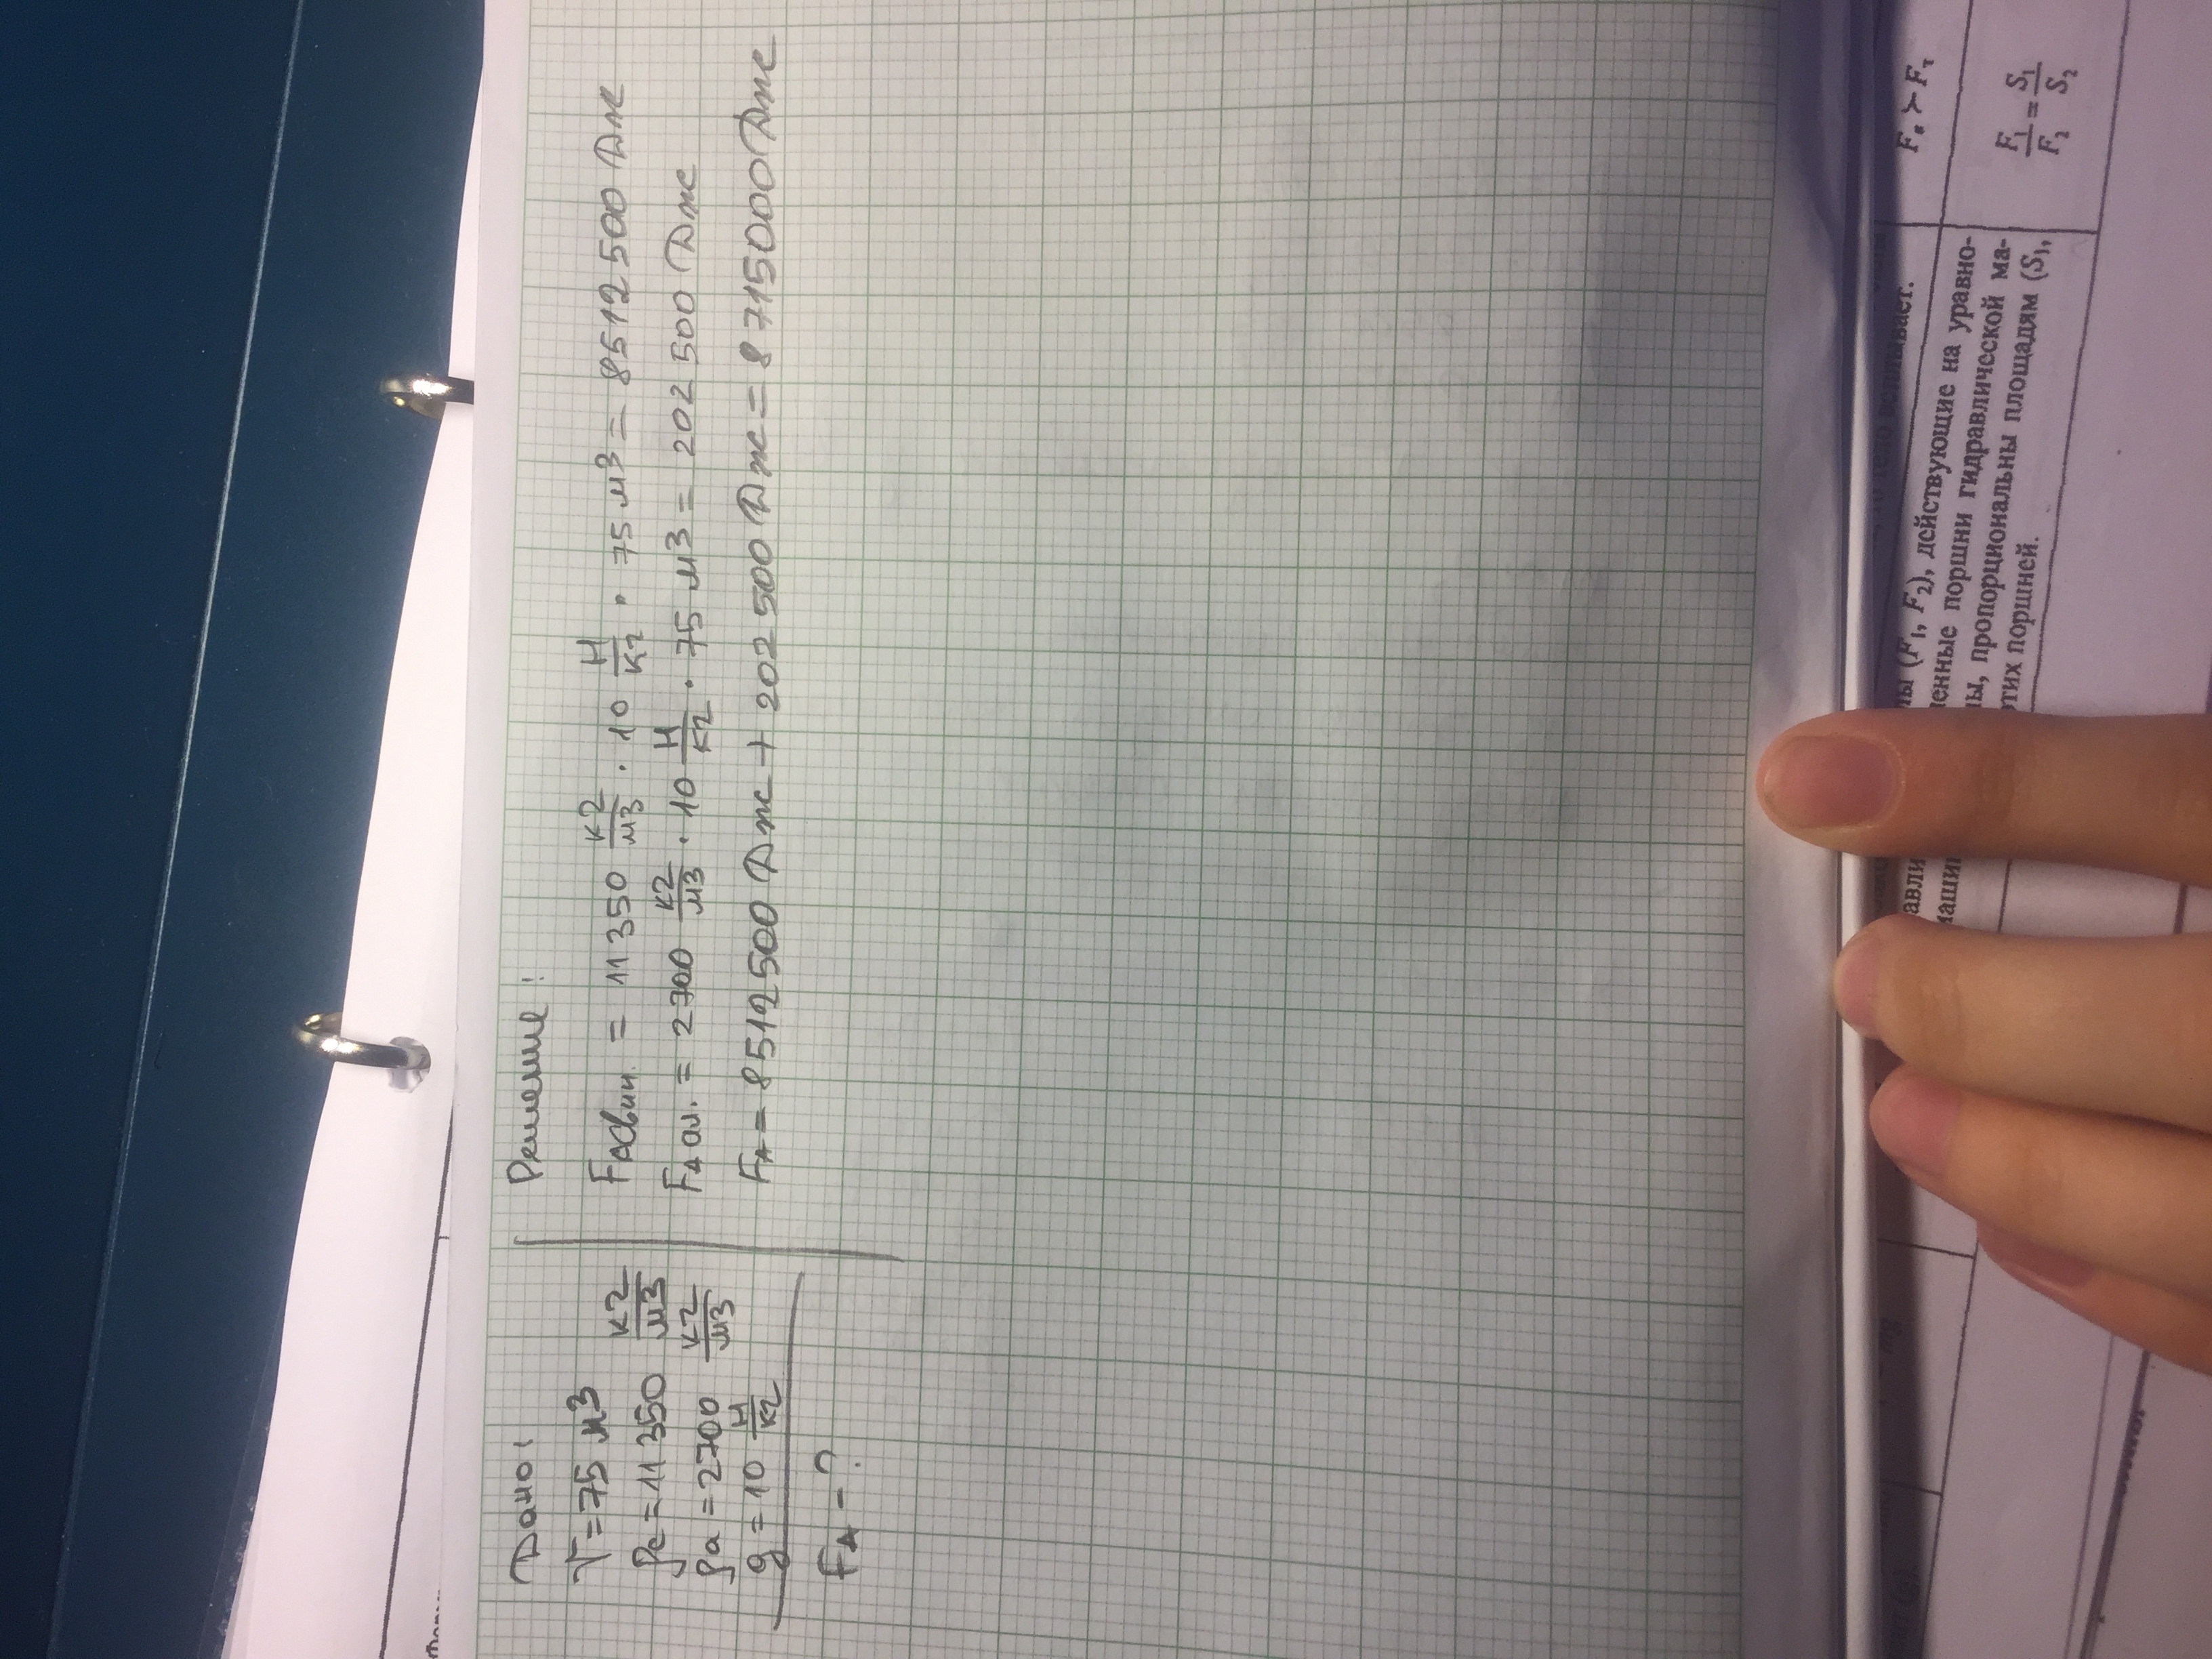 Дано:
V = 75 м3
ρс = 11 350 кг/м3
ρа = 2700 кг/м3
g = 10 Н/кг
FA - ?
Решение:
FAсвин. = 11 350 кг/м3 · 10 Н/кг · 75 м3 = 8512500 Дж
FAал. = 2700 кг/м3 · 10 Н/кг · 75 м3 = 202 500 Дж
FA = 8512500 Дж + 202 500 Дж = 8 715000 Дж
всплывает.
(F1, F2), действующие на уравно-
поршни гидравлической ма-
пропорциональны площадям (S1,
этих поршней.
F1/F2 = S1/S2